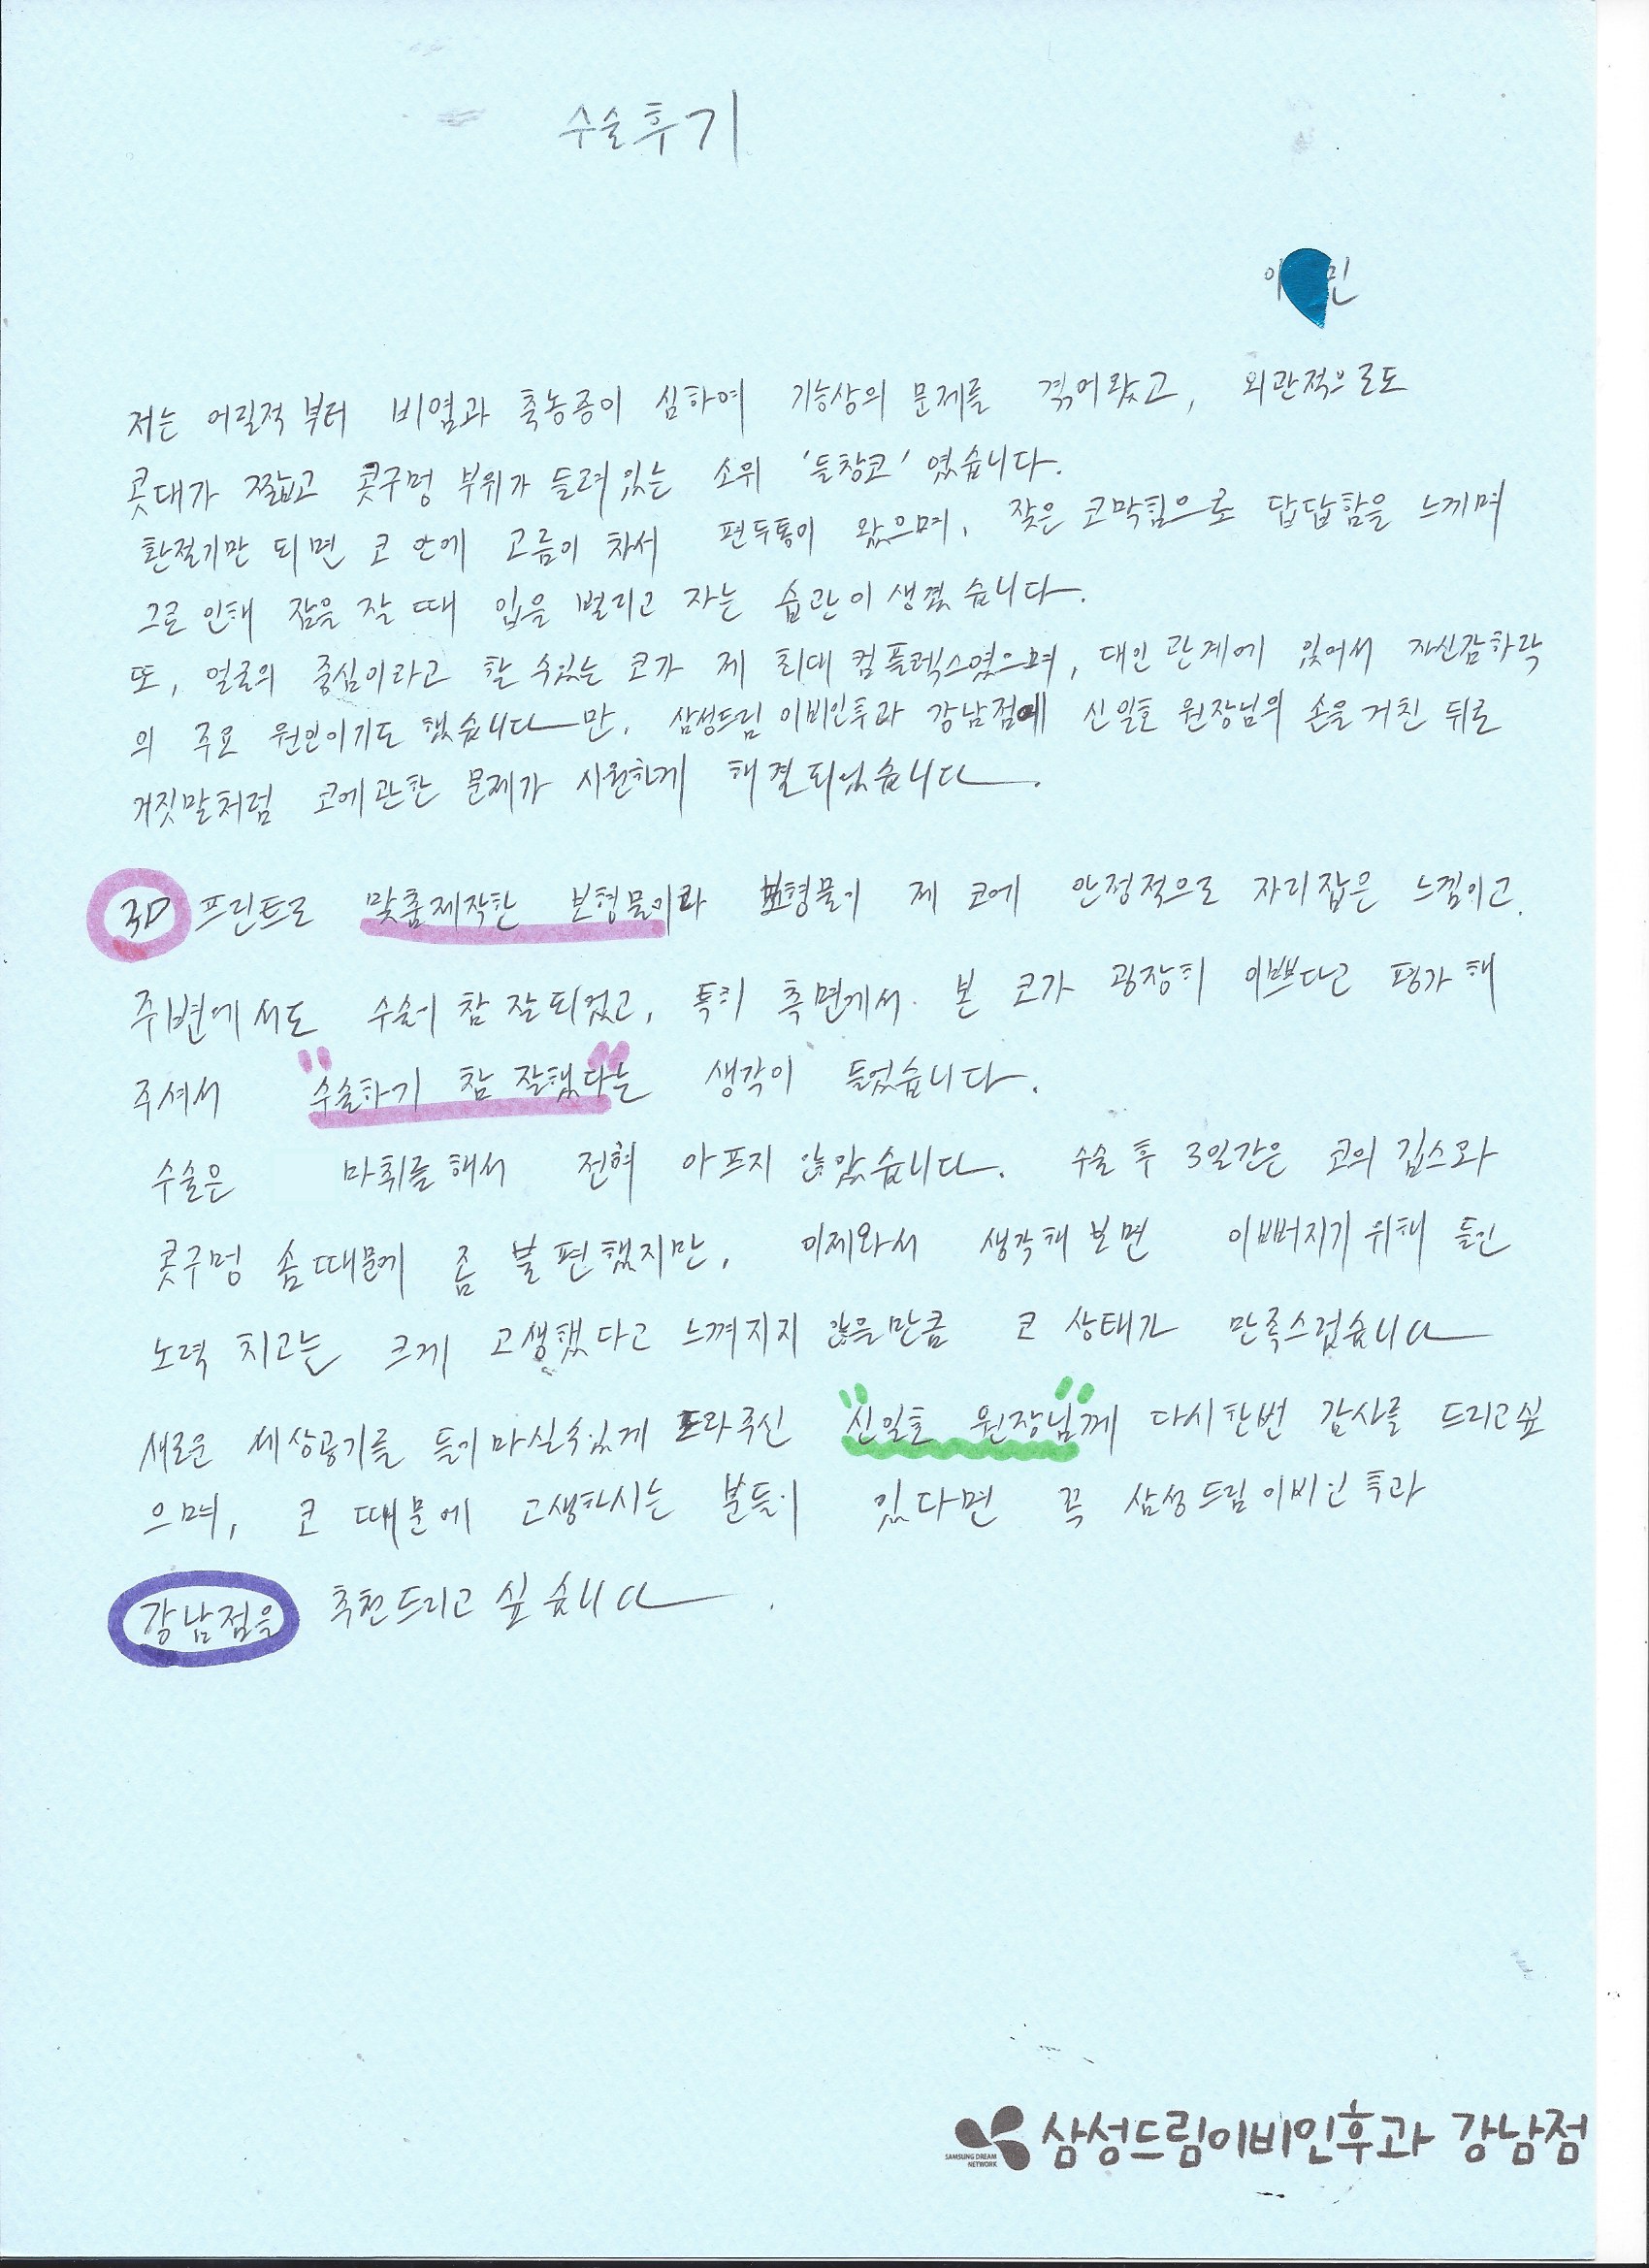 수술후기
이 민
저는 어릴적부터 비염과 축농증이 심하여 기능상의 문제를 겪어왔고, 외관적으로도
콧대가 짧고 콧구멍 부위가 들려있는 소위 '들창코'였습니다.
환절기만 되면 코 안에 고름이 차서 편두통이 왔으며, 잦은 코막힘으로 답답함을 느끼며
그로 인해 잠을 잘 때 입을 벌리고 자는 습관이 생겼습니다.
또, 얼굴의 중심이라고 할 수있는 코가 제 최대 컴플렉스였으며, 대인관계에 있어서 자신감하락
의 주요 원인이기도 했습니다만, 삼성드림이비인후과 강남점에 신일호 원장님의 손을 거친 뒤로
거짓말처럼 코에관한 문제가 시원하게 해결되었습니다.
3D 프린트로 맞춤제작한 보형물이라 보형물이 제 코에 안정적으로 자리잡은 느낌이고.
주변에서도 수술이 참 잘되었고, 특히 측면에서 본 코가 굉장히 이쁘다고 평가해
주셔서 "수술하기 참 잘했다"는 생각이 들었습니다.
수술은 마취를해서 전혀 아프지 않았습니다. 수술 후 3일간은 코의 깁스와
콧구멍 솜때문에 좀 불편했지만, 이제와서 생각해보면 이뻐지기위해 들인
노력 치고는 크게 고생했다고 느껴지지 않을만큼 코 상태가 만족스럽습니다
새로운 세상공기를 들이마실수있게 도와주신 "신일호 원장님"께 다시한번 감사를 드리고싶
으며, 코 때문에 고생하시는 분들이 있다면 꼭 삼성드림이비인후과
강남점을 추천드리고싶습니다.
SAMSUNG DREAM NETWORK
삼성드림이비인후과 강남점